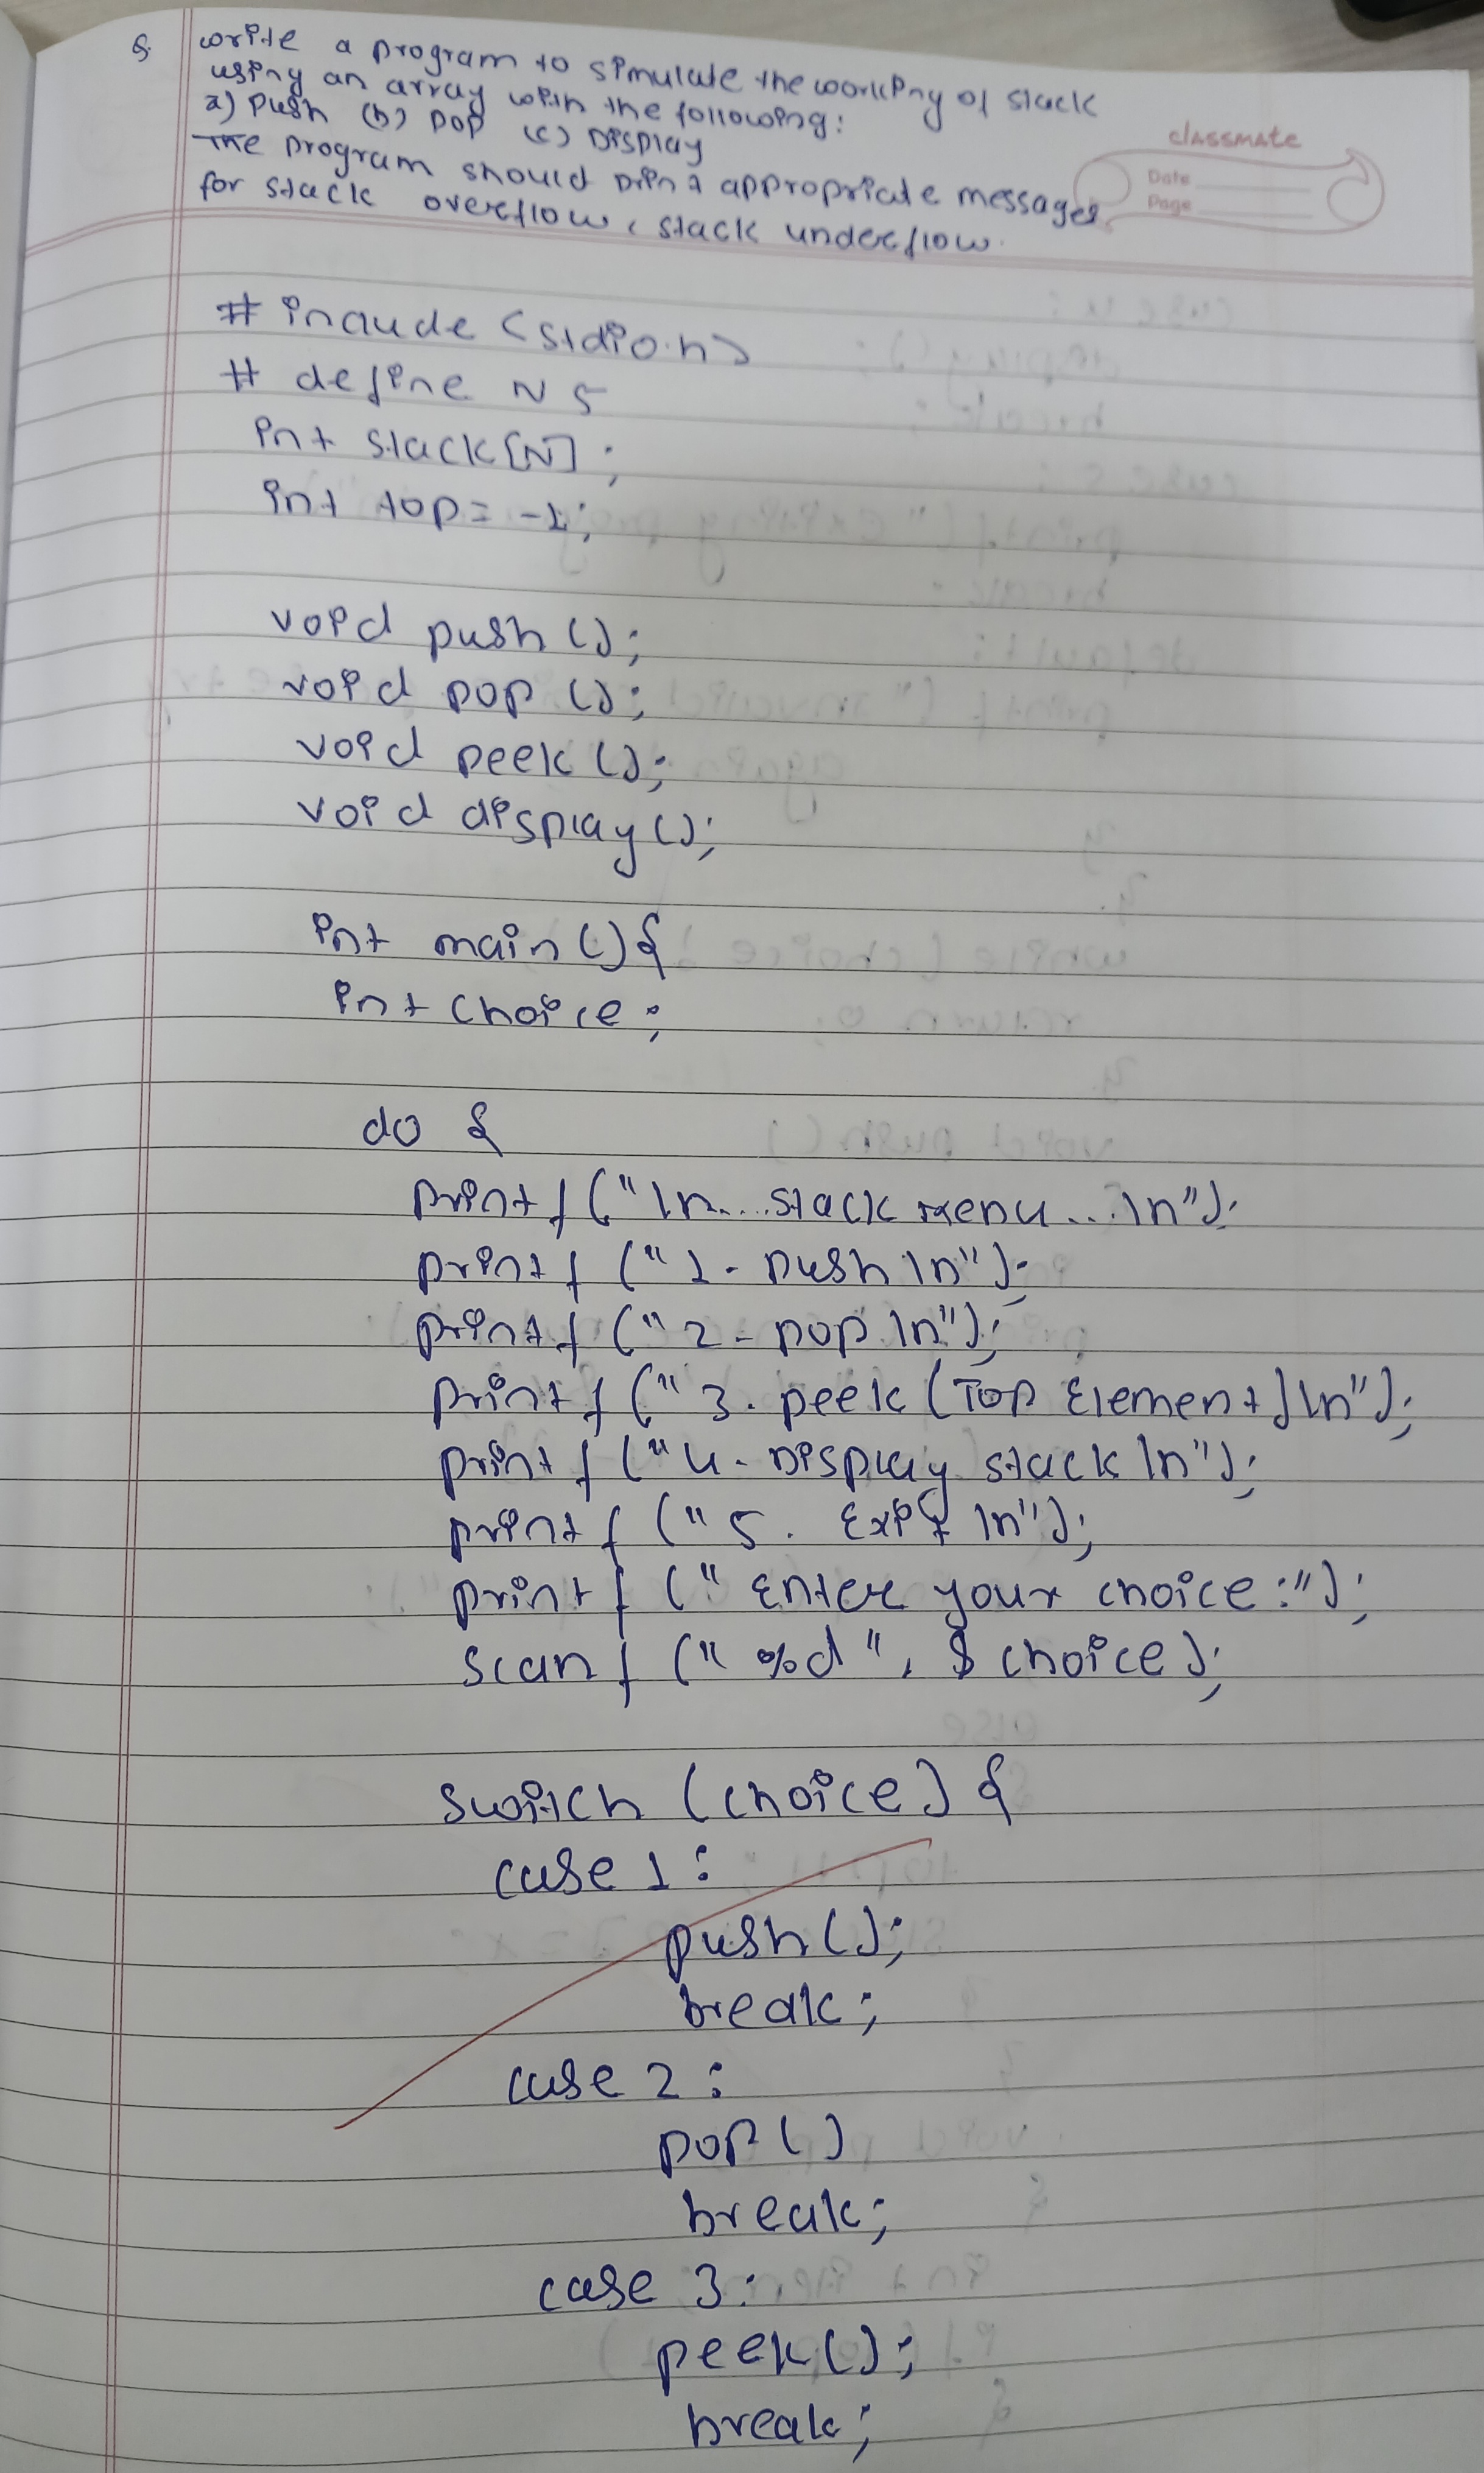 Q. write a program to simulate the working of stack
using an array with the following:
a) push (b) pop (c) Display
The program should print appropriate messages
for stack overflow, stack underflow.
classmate
Date
Page
# include <stdio.h>
# define N 5
int stack[N];
int top = -1;
void push ();
void pop ();
void peek ();
void display ();
int main () {
int choice;
do {
printf ("\n....stack menu...\n");
printf ("1. push \n");
printf ("2. pop \n");
printf ("3. peek (Top Element) \n");
printf ("4. Display stack \n");
printf ("5. Exit \n");
printf (" Enter your choice:");
scanf (" %d ", & choice);
switch (choice) {
case 1:
push ();
break;
case 2:
pop ()
break;
case 3:
peek ();
break;